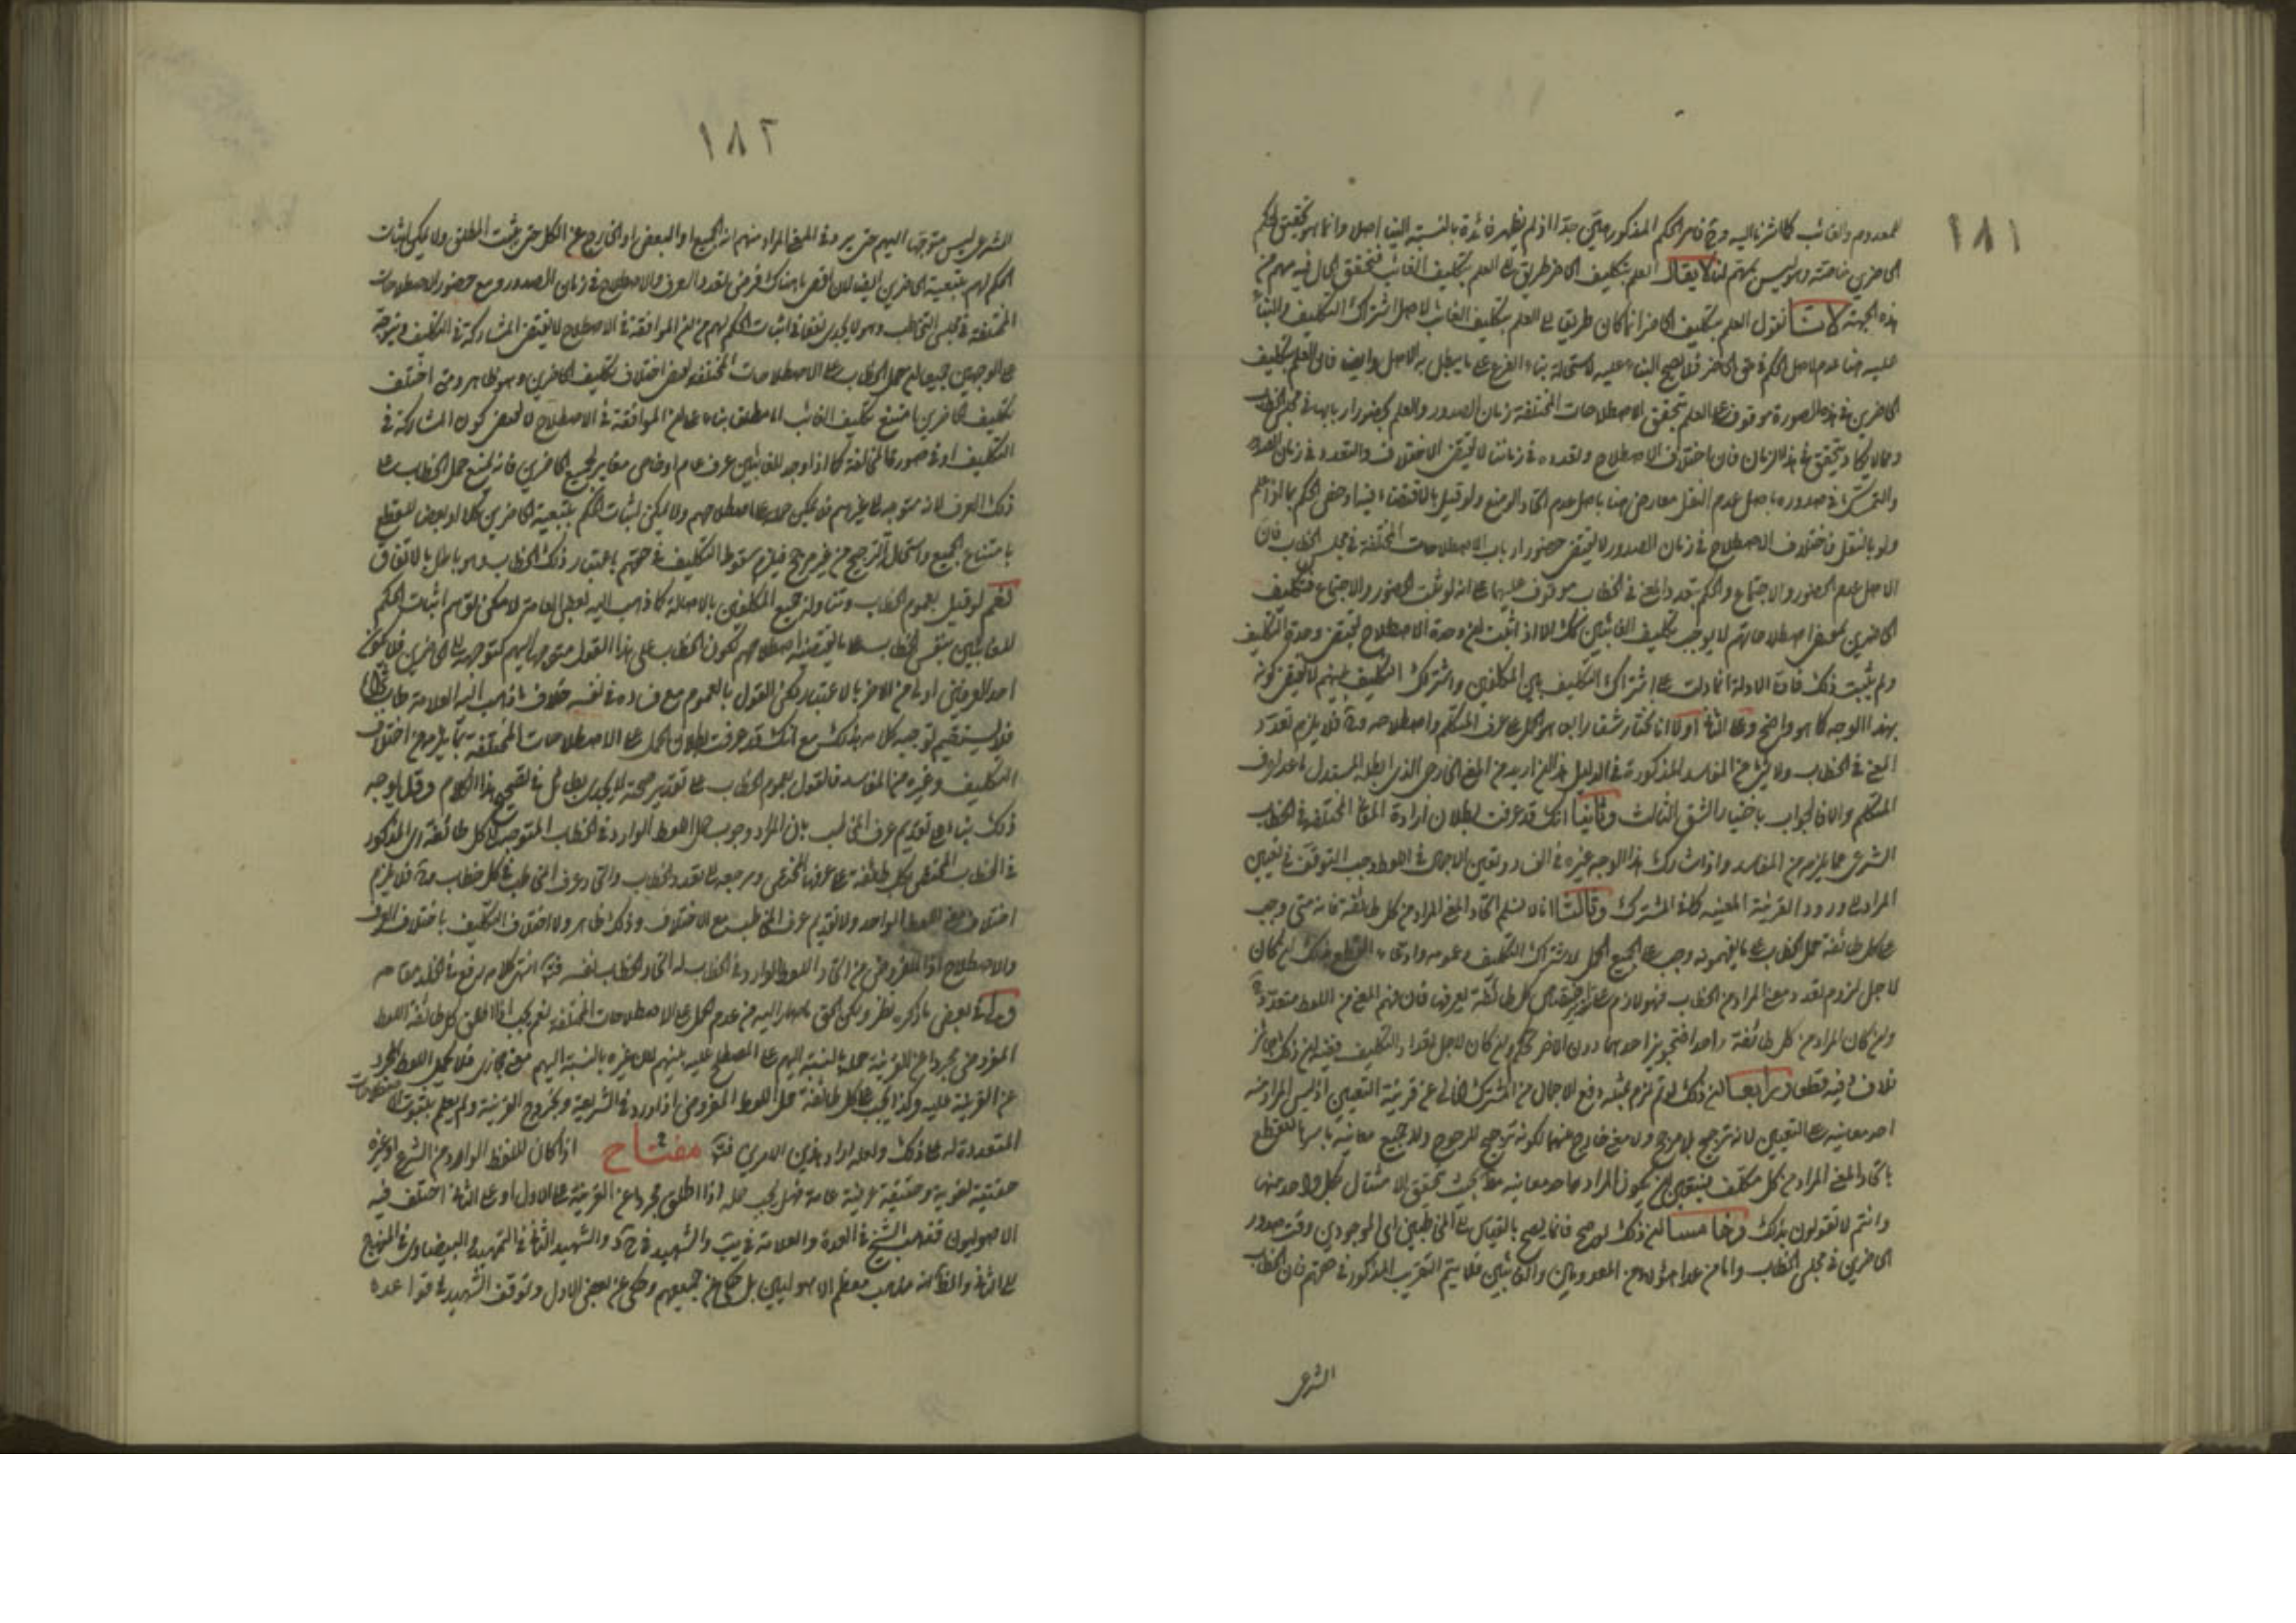 ١٨١
للمعدوم والغائب كما اشرنا اليه وح فامر الحكم المذكور هين جدا اذ لم يظهر فائدة بالنسبة الينا اصلا وانما هو تحقيق الحكم
الحاضرين خاصة وهو ليس بمهم لنا لا يقال العلم بتكليف الحاضر طريق الى العلم بتكليف الغائب فتحقق الحال فيه مهم من
هذه الجهة لانا نقول العلم بتكليف الحاضر انما كان طريقا الى العلم بتكليف الغائب لاصل اشتراك التكليف والبناء
عليه هنا عدم لاصل الحكم في حق الحاضر فلا يصح البناء عليه لاستحالة بناء الفرع على ما يبطل به الاصل وايضا فان العلم بتكليف
الحاضرين في هذه الصورة موقوف على العلم بتحقق الاصطلاحات المختلفة زمان الصدور والعلم بحضور اربابها في مجلس الخطاب
ومما لا يكاد يتحقق في هذا الزمان فان اختلاف الاصطلاح وتعدده في زماننا لا يقتضي الاختلاف والتعدد في زمان الصدور
والتمسك في صدوره باصل عدم النقل معارض هنا باصل عدم اتحاد الوضع ولو قيل بالاقتضاء فيها وخص الحكم بما اذا علم
ولو بالنقل فاختلاف الاصطلاح في زمان الصدور لا يقتضي حضور ارباب الاصطلاحات المختلفة في مجلس الخطاب فان
الاصل عدم الحضور والاجتماع والحكم بتعدد المعنى في الخطاب موقوف عليهما على انه لو ثبت الحضور والاجتماع فتكليف
الحاضرين بمقتضى اصطلاحاتهم لا يوجب تكليف الغائبين كك الا اذا ثبت ان وحدة الاصطلاح يقتضي وحدة التكليف
ولم يثبت ذلك فان الادلة انما دلت على اشتراك التكليف بين المكلفين واشتراك التكليف بينهم لا يقتضي كونه
بهذا الوجه كما هو واضح وعلى الثاني اولا انا نختار شقا رابعا هو الحمل على عرف المتكلم واصطلاحه وح فلا يلزم تعدد
المعنى في الخطاب ولا شئ من المفاسد المذكورة في الدليل هذا ان اريد من المعنى الخارجي الذي ابطله المستدل ما عدا عرف
المتكلم والا فالجواب باختيار الشق الثالث وثانيا انك قد عرفت بطلان ارادة المعاني المختلفة في الخطاب
الشرعي مما يلزمه من المفاسد واذا شارك هذا الوجه غيره في الفساد وتعين الاجمال في اللفظ وجب التوقف في تعيين
المراد على ورود القرينة المعينة كما في المشترك وثالثا انا لا نسلم اتحاد المعنى المراد من كل طائفة فانه متى وجب
على كل طائفة حمل الخطاب على ما يفهمونه وجب على الجميع الحمل لاشتراك التكليف وعمومه وادعاء القطع بذلك ان كان
لاجل لزوم تعدد معنى المراد من الخطاب فهو لازم على كل طائفة يعرفها فان فهم المعنى من اللفظ متعدد
وان كان المراد من كل طائفة واحدا فتجويز احدهما دون الاخر تحكم وان كان لاجل تعداد التكليف ففيه ان ذلك جائز
خلاف فيه قطعا ورابعا ان ذلك لو تم لزم بمثله دفع الاجمال من المشترك الخالي عن قرينة التعيين اذ ليس المراد منه
احد معانيه على التعيين لانه ترجيح بلا مرجح ولا معنى خارج عنهما لكونه ترجيح المرجوح ولا جميع معانيه باسرها للقطع
باتحاد المعنى المراد من كل مكلف فينبغي ان يكون المراد بها احد معانيه بحيث يتحقق الامتثال بكل واحد منها
وانتم لا تقولون بذلك وخامسا ان ذلك لو صح فانما يصح بالقياس الى المخاطبين اي الموجودين وقت صدور
الحاضرين في مجلس الخطاب واما من عدا هؤلاء من المعدومين والغائبين فلا يتم التقريب المذكور في حقهم فان الخطاب
الشرعي
١٨٢
الشرعي ليس متوجها اليهم حتى يردد في المعنى المراد منهم انه الجميع او البعض او الخارج عن الكل حتى يثبت المطلق ولا يمكن اثبات
الحكم لهم بتبعية الحاضرين ايضا لان اقصى ما هناك فرض تعدد العرف والاصطلاح في زمان الصدور ومع حضور الاصطلاحات
المختلفة في مجلس التخاطب وهو لا يجدي نفعا في اثبات الحكم لهم من ان الموافقة في الاصطلاح لا يقتضي المشاركة في التكليف ويتوجه
على الوجهين جميعا ان حمل الخطاب على الاصطلاحات المختلفة يقتضي اختلاف تكليف الحاضرين وهو ظاهر ومتى اختلف
تكليف الحاضرين امتنع تكليف الغائب اما مطلقا بناء على ان الموافقة في الاصطلاح لا يقتضي كون المشاركة في
التكليف او في صورة المخالفة كما اذا وجد للغائبين عرف عام او خاص مغاير لجميع الحاضرين فانه يمتنع حمل الخطاب على
ذلك العرف لانه متوجه الى غيرهم فلا يمكن حمله على اصطلاحهم ولا يمكن اثبات الحكم بتبعية الحاضرين كلا او بعضا للقطع
بامتناع الجميع واستحالة الترجيح من غير مرجح فيلزم سقوط التكليف في حقهم باعتبار ذلك الخطاب وهو باطل بالاتفاق
نعم لو قيل بعموم الخطاب وتناوله جميع المكلفين بالاصالة كما ذهب اليه بعض العامة لامكن لهم اثبات الحكم
للغائبين بنفس الخطاب على ما يقتضيه اصطلاحهم لكون الخطاب على هذا القول متوجها اليهم كتوجهه الى الحاضرين فلا يكون
احد العرفين اولى من الاخر بالاعتبار لكن القول بالعموم مع فساده في نفسه خلاف ما ذهب اليه العلامة طاب ثراه
فلا يستقيم توجيه كلامه بذلك مع انك قد عرفت بطلان الحمل على الاصطلاحات المختلفة بما يلزمه من اختلاف
التكليف وغيره من المفاسد فالقول بعموم الخطاب على تقدير صحته لا يجدي بطائل في تصحيح هذا الكلام وقد يوجه
ذلك بناء على تقديم عرف المخاطب بان المراد وجوب حمل اللفظ الوارد في الخطاب المتوجه الى كل طائفة اي المذكور
في الخطاب المختص بكل طائفة على عرفها الخاص ومرجعه الى تعدد الخطاب واتحاد عرف المخاطب في كل خطاب وح فلا يلزم
اختلاف معنى اللفظ الواحد ولا تقديم عرف المخاطب مع الاختلاف وذلك ظاهر ولا اختلاف التكليف باختلاف العرف
والاصطلاح اذ المفروض عن اتحاد اللفظ الوارد في الخطاب لا اتحاد الخطاب نفسه فتأمل انتهى كلامه رفع في الخلد مقامه
وفي بعض ما ذكره نظر ولكن الحق ما صار اليه من عدم الحمل على الاصطلاحات المختلفة نعم يجب اذا اطلق كل طائفة اللفظ
المفروض مجردا عن القرينة حمله بالنسبة اليهم على المصطلح عليه بينهم لان غيره بالنسبة اليهم معنى مجازي فلا يحمل اللفظ المجرد
عن القرينة عليه وكذا يجب على كل طائفة حمل اللفظ المفروض اذا ورد في الشريعة وتجرد عن القرينة ولم يعلم بثبوت الاصطلاحات
المتعددة له على ذلك ولعله اراد هذين الامرين فتأمل مفتاح اذا كان للفظ الوارد من الشرع او غيره
حقيقة لغوية وحقيقة عرفية عامة فهل يجب حمله اذا اطلق مجردا عن القرينة على الاول او على الثاني اختلف فيه
الاصوليون فذهب الشيخ في العدة والعلامة في يب والشهيد في والشهيد الثاني في التمهيد والبيضاوي في المنهاج
الى الثاني والظاهر انه مذهب معظم الاصوليين بل حكي عن جميعهم وحكي عن بعض الاول وتوقف الشهيد في قواعده